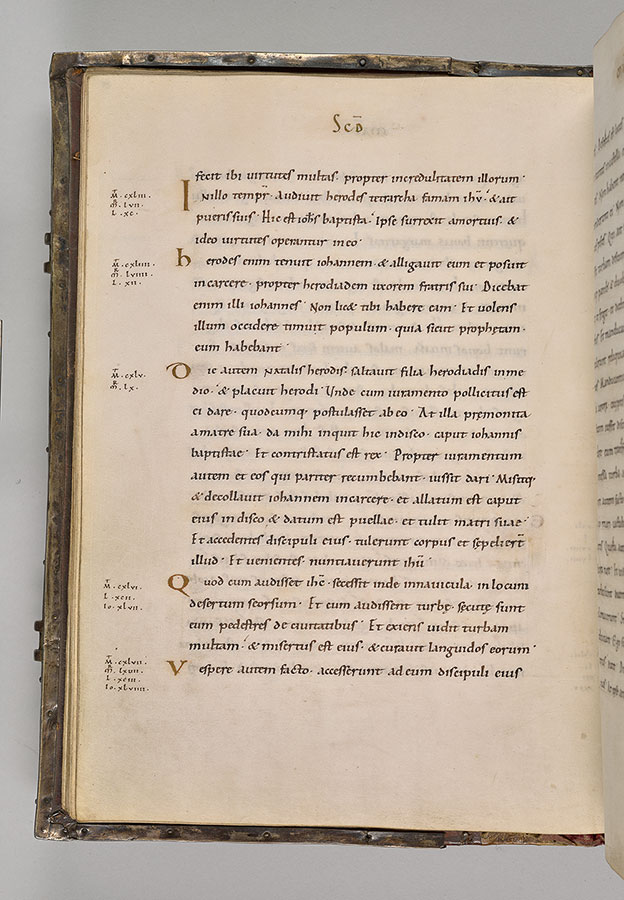 Scd̄
fecit ibi virtutes multas· propter incredulitatem illorum·
Inillo tempr̄· Audiuit herodes tetrarcha famam ihu̅· & ait
pueris suis· Hic est ioh̅s baptista· Ipse surrexit amortuis· &
ideo virtutes operantur ineo·
M̅· cxliii·
m̅r· lvii·
L· xc·
herodes enim tenuit iohannem· & alligauit eum et posuit
incarcere· propter herodiadem uxorem fratris sui· Dicebat
enim illi iohannes· Non lic& tibi habere eam· Et volens
illum occidere timuit populum· quia sicut prophetam·
eum habebant·
M̅· cxliiii·
m̅r· lviiii·
L· xii·
Die autem natalis herodis· saltauit filia herodiadis inme
dio· & placuit herodi· Unde cum iuramento pollicitus est
ei dare· quodcumq· postulasset ab eo· At illa premonita
amatre sua· da mihi inquit hic indisco· caput iohannis
baptistae· Et contristatus est rex· Propter iuramentum
autem et eos qui pariter recumbebant· iussit dari· Misitq·
& decollauit iohannem incarcere· et allatum est caput
eius in disco & datum est puellae· et tulit matri suae·
Et accedentes discipuli eius· tulerunt corpus et sepelier̄t
illud· Et venientes· nuntiauerunt ihu̅·
M̅· cxlv·
m̅r· lx·
Quod cum audisset ihc̅· secessit inde innauicula· in locum
desertum seorsum· Et cum audissent turbę· secutę sunt
eum pedestres de ciuitatibus· Et exiens vidit turbam
multam· & misertus est eius· & curauit languidos eorum·
M̅· cxlvi·
L· xcii·
Io· xlvii·
Vespere autem facto· accesserunt ad eum discipuli eius
M̅· cxlvii·
m̅r· lxiii·
L· xciii·
Io· xlviiii·